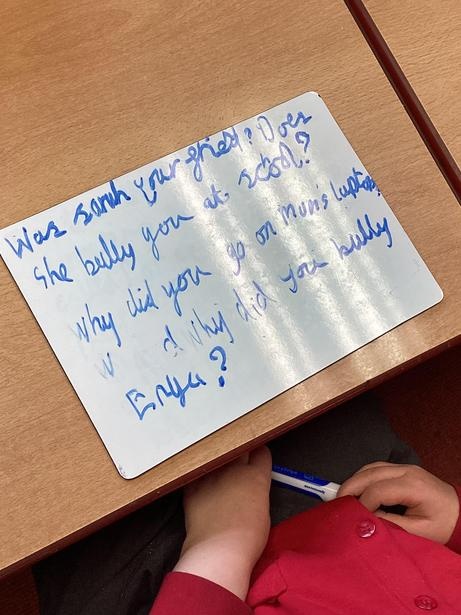 Was sarah your fried? Does
she bully you at scool?
Why did you go on mum's laptop?
W why did you bully
Enya?